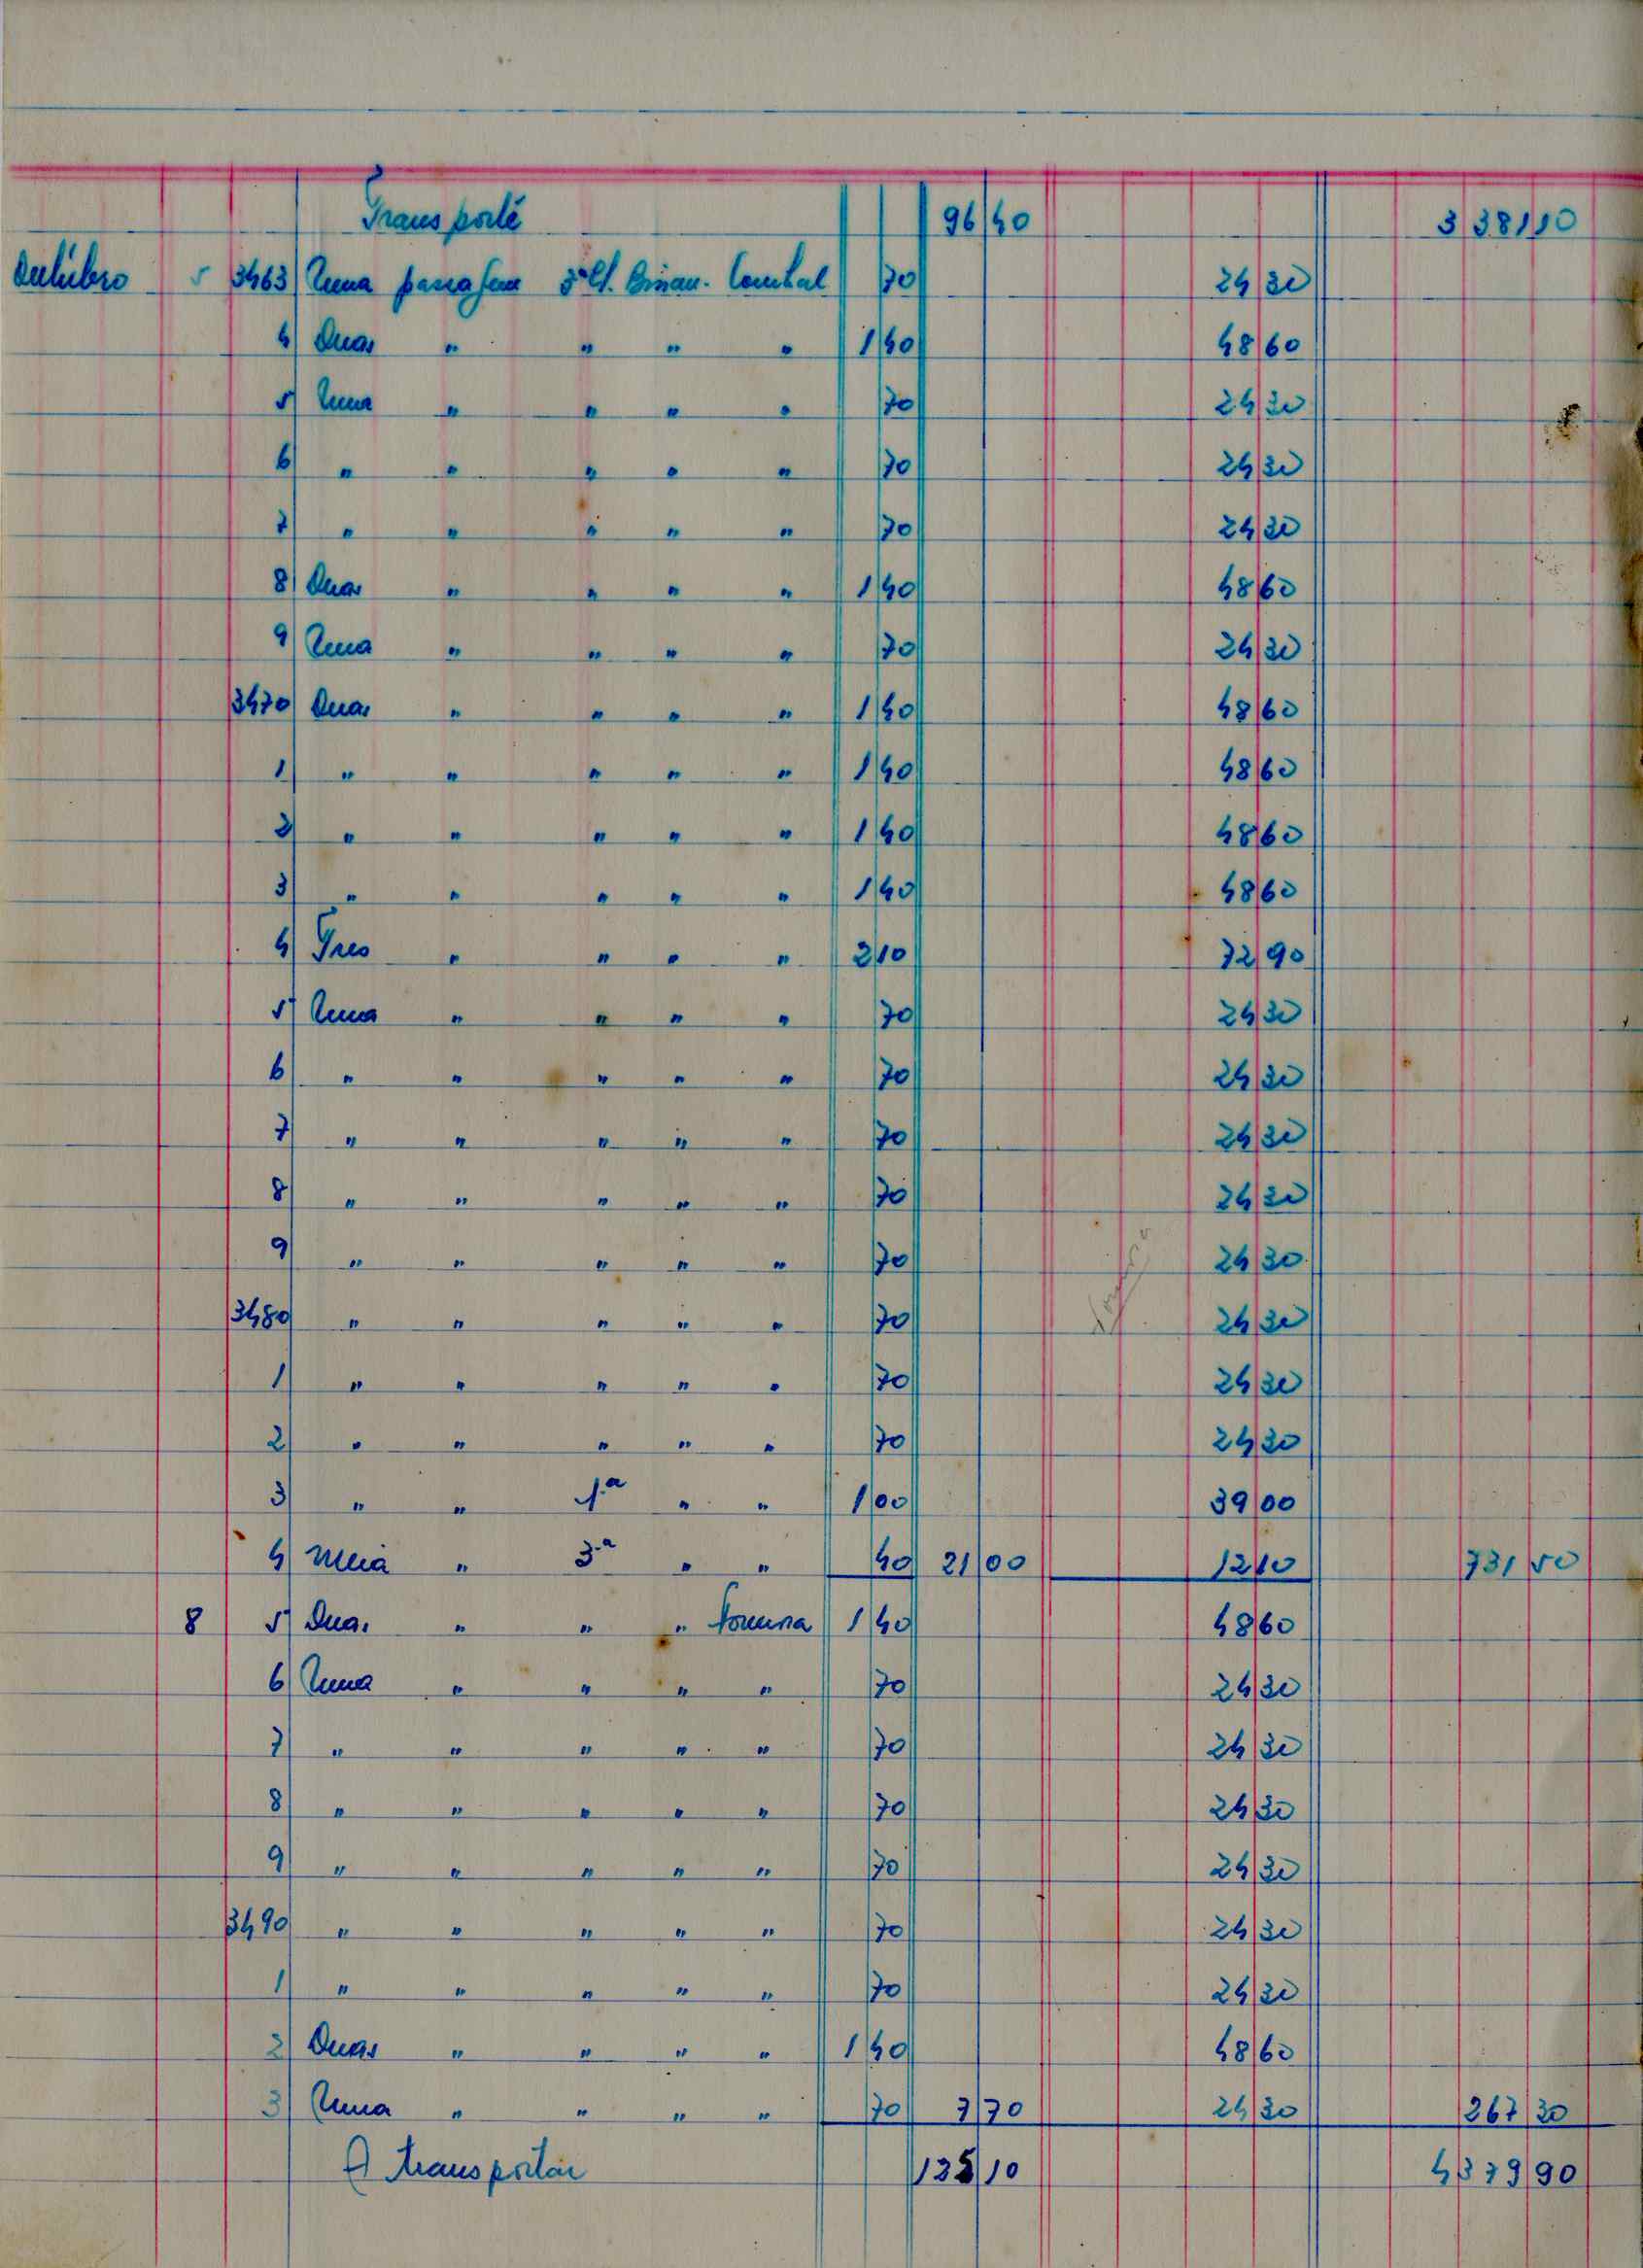 Transporte 96 40 3 381 10
Outubro 5 3463 Uma passagem 3ª Cl. Bissau. 70 24 30
4 Duas " " " " 1 40 48 60
5 Uma " " " " 70 24 30
6 " " " " " 70 24 30
7 " " " " " 70 24 30
8 Duas " " " " 1 40 48 60
9 Uma " " " " 70 24 30
3470 Duas " " " " 1 40 48 60
1 " " " " " 1 40 48 60
2 " " " " " 1 40 48 60
3 " " " " " 1 40 48 60
4 Tres " " " " 2 10 72 90
5 Uma " " " " 70 24 30
6 " " " " " 70 24 30
7 " " " " " 70 24 30
8 " " " " " 70 24 30
9 " " " " " 70 24 30
3480 " " " " " 70 24 30
1 " " " " " 70 24 30
2 " " " " " 70 24 30
3 " " 1ª " " 1 00 39 00
4 Meia " 3ª " " 40 21 00 12 10 731 50
8 5 Duas " " " 1 40 48 60
6 Uma " " " " 70 24 30
7 " " " " " 70 24 30
8 " " " " " 70 24 30
9 " " " " " 70 24 30
3490 " " " " " 70 24 30
1 " " " " " 70 24 30
2 Duas " " " " 1 40 48 60
3 Uma " " " " 70 7 70 24 30 267 30
A transportar 125 10 4 379 90